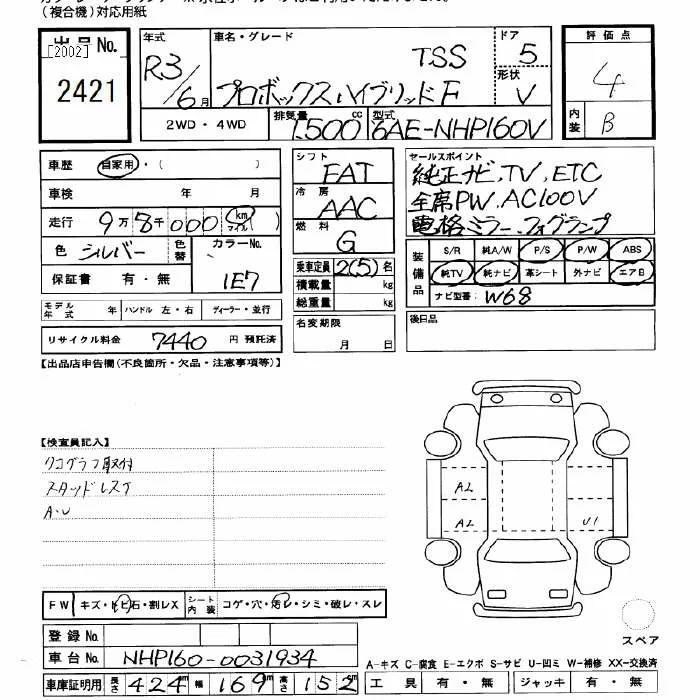 (複合機)対応用紙
出品No.
[2002]
2421
年式
R3/6月
車名・グレード
TSS
プロボックスハイブリッドF
ドア
5
形状
V
評価点
4
内装
B
2WD・4WD
排気量
1,500cc
型式
6AE-NHP160V
車歴
自家用・( )
車検 年 月
走行 9万8千000 km マイル
色 シルバー
色替
カラーNo.
1E7
保証書 有・無
モデル年式 年
ハンドル 左・右
ディーラー・並行
リサイクル料金 7440 円 預託済
シフト
FAT
冷房
AAC
燃料
G
乗車定員 2(5)名
積載量 kg
総重量 kg
名変期限
月 日
セールスポイント
純正ナビ,TV,ETC
全席PW,AC100V
電格ミラー,フォグランプ
装備品
S/R 純A/W P/S P/W ABS
純TV 純ナビ 革シート 外ナビ エアB
ナビ型番: W68
後日品
【出品店申告欄(不良箇所・欠品・注意事項等)】
【検査員記入】
タコグラフ取付
スタッドレスT
A・U
A2
A2
U1
FW キズ・トビ石・割レX
シート内装 コゲ・穴・汚レ・シミ・破レ・スレ
スペア
登録No.
車台No. NHP160-0031934
車庫証明用 長さ 424m 幅 169m 高さ 152m
A-キズ C-腐食 E-エクボ S-サビ U-凹ミ W-補修 XX-交換済
工具 有・無 ジャッキ 有・無